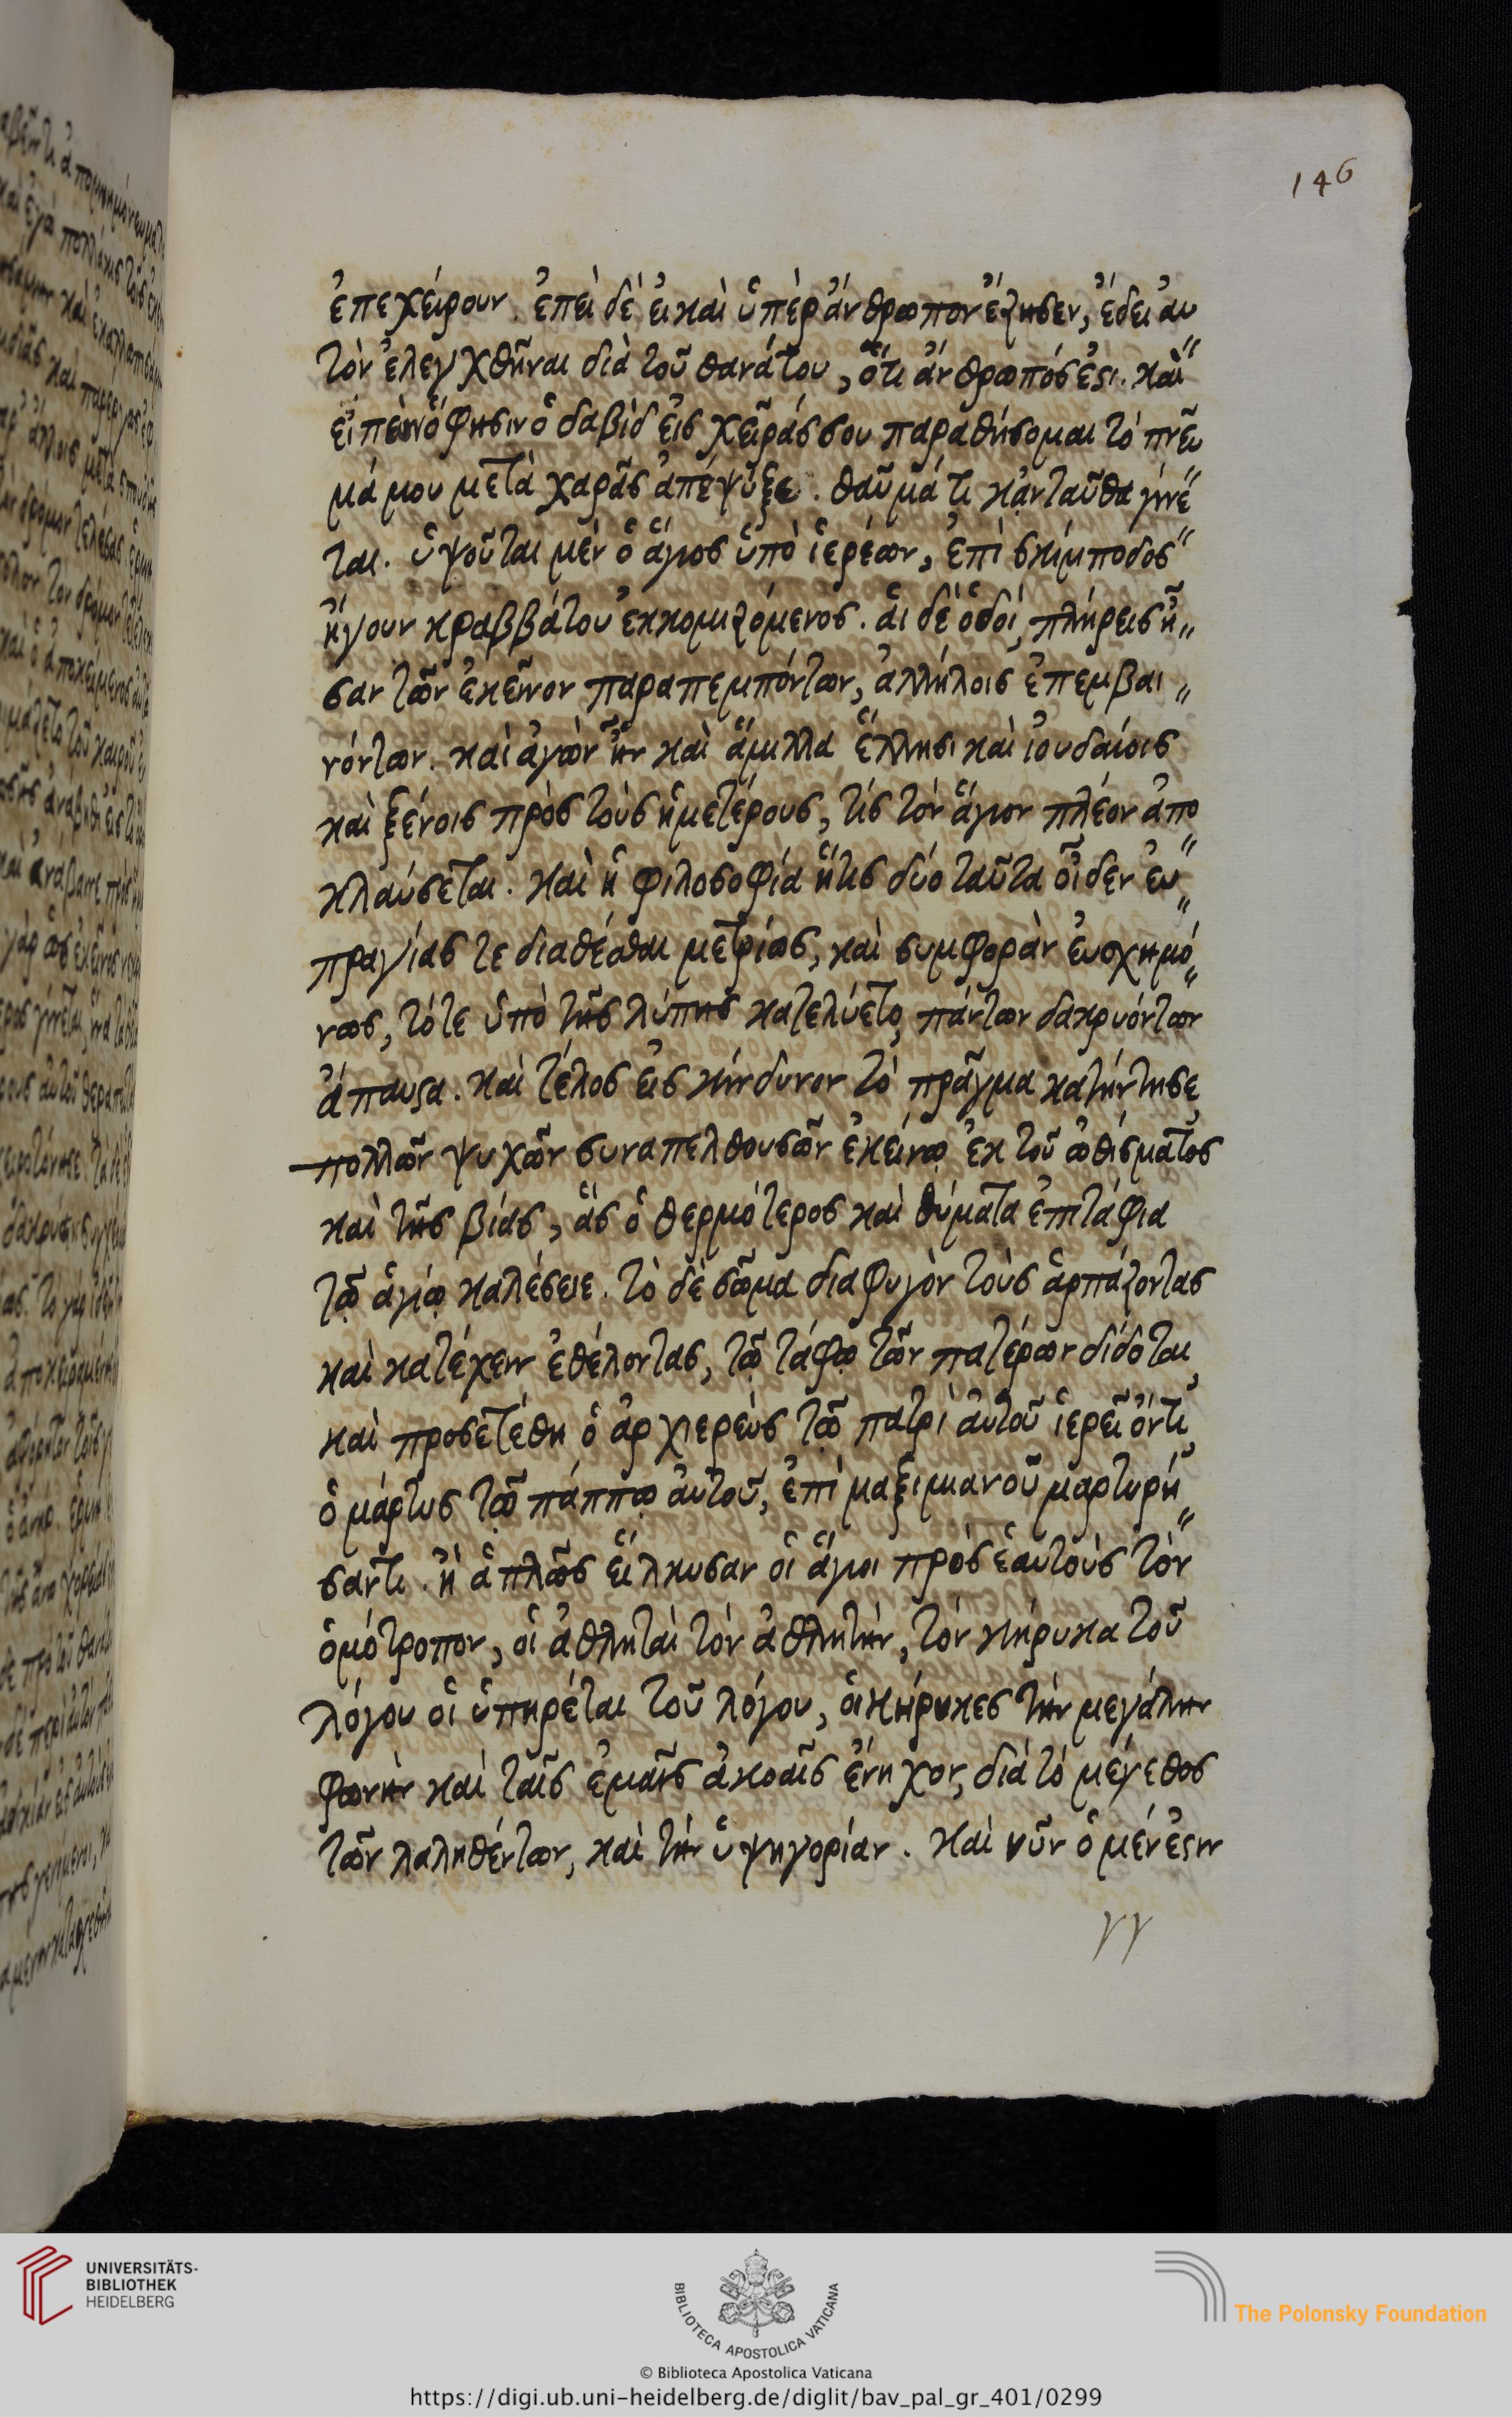 146
ἐπεχείρουν. ἐπεὶ δὲ εἰ καὶ ὑπὲρ ἄνθρωπον ἔζησεν, ἔδει ἀυ
τὸν ἐλεγχθῆναι διὰ τοῦ θανάτου, ὅτι ἄνθρωπός ἐστι. καὶ
εἰπὼν ὅ φησιν ὁ δαβὶδ εἰς χεῖράς σου παραθήσομαι τὸ πνεῦ
μά μου μετὰ χαρᾶς ἀπέψυξε. θαῦμά τι κἀνταῦθα γίνε
ται. ὑψοῦται μὲν ὁ ἅγιος ὑπὸ ἱερέων, ἐπὶ σκίμποδος
ἤγουν κραββάτου ἐκκομιζόμενος. ἁι δὲ ὁδοὶ, πλήρεις ἦ
σαν τῶν ἐκεῖνον παραπεμπόντων, ἀλλήλοις ἐπεμβαι
νόντων. καὶ ἀγὼν ἦν καὶ ἅμιλλα ἕλλησι καὶ ἰουδαίοις
καὶ ξένοις πρὸς τοὺς ἡμετέρους, τίς τὸν ἅγιον πλέον ἀπο
κλαύσεται. καὶ ἡ φιλοσοφία ἥτις δύο ταῦτα οἶδεν ἐυ
πραγίας τε διαθέσθαι μετρίως, καὶ συμφορὰν ἐυσχημό
νως, τότε ὑπὸ τῆς λύπης κατελύετο, πάντων δακρυόντων
ἄπαυστα. καὶ τέλος εἰς κίνδυνον τὸ πρᾶγμα κατήντησε
πολλῶν ψυχῶν συναπελθουσῶν ἐκείνῳ ἐκ τοῦ ὠθίσματος
καὶ τῆς βίας, ἃς ὁ θερμότερος καὶ θύματα ἐπιτάφια
τῷ ἁγίῳ καλέσειε. τὸ δὲ σῶμα διαφυγὸν τοὺς ἁρπάζοντας
καὶ κατέχειν ἐθέλοντας, τῷ τάφῳ τῶν πατέρων δίδοται
καὶ προσετέθη ὁ ἀρχιερεὺς τῷ πατρὶ ἀυτοῦ ἱερεῖ ὄντι
ὁ μάρτυς τῷ πάππῳ ἀυτοῦ, ἐπὶ μαξιμιανοῦ μαρτυρή
σαντι. ἢ ἁπλῶς εἵλκυσαν οἱ ἅγιοι πρὸς ἑαυτοὺς τὸν
ὁμότροπον, οἱ ἀθληταὶ τὸν ἀθλητὴν, τὸν κήρυκα τοῦ
λόγου οἱ ὑπηρέται τοῦ λόγου, οἱ κήρυκες τὴν μεγάλην
φωνὴν καὶ ταῖς ἐμαῖς ἀκοαῖς ἔνηχον, διὰ τὸ μέγεθος
τῶν λαληθέντων, καὶ τὴν ὑψηγορίαν. καὶ νῦν ὁ μέν ἐστιν
γγ
UNIVERSITÄTS-
BIBLIOTHEK
HEIDELBERG
BIBLIOTECA APOSTOLICA VATICANA
The Polonsky Foundation
© Biblioteca Apostolica Vaticana
https://digi.ub.uni-heidelberg.de/diglit/bav_pal_gr_401/0299